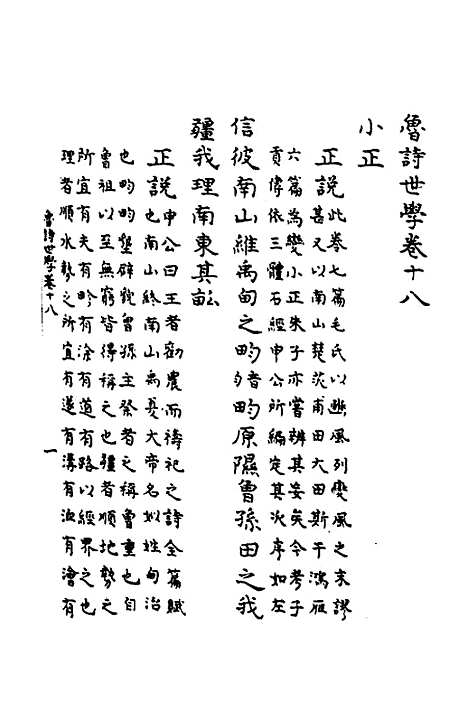 魯詩世學卷十八
小正
正說此卷七篇毛氏以豳風列變風之末謬
甚又以南山楚茨甫田大田斯干鴻雁
六篇為變小正朱子亦嘗辨其妄矣今考子
貢傳依三體石經申公所編定其次序如左
信彼南山維禹甸之畇畇原隰曾孫田之我
疆我理南東其畝
正說申公曰王者勸農而禱祀之詩全篇賦
也南山終南山禹夏大帝名姒姓甸治
也畇畇墾辟貌曾孫主祭者之稱曾重也自
曾祖以至無窮皆得稱之也疆者順地勢之
所宜有夫有畛有涂有道有路以經界之也
理者順水勢之所宜有遂有溝有洫有澮有
魯詩世學卷十八
一